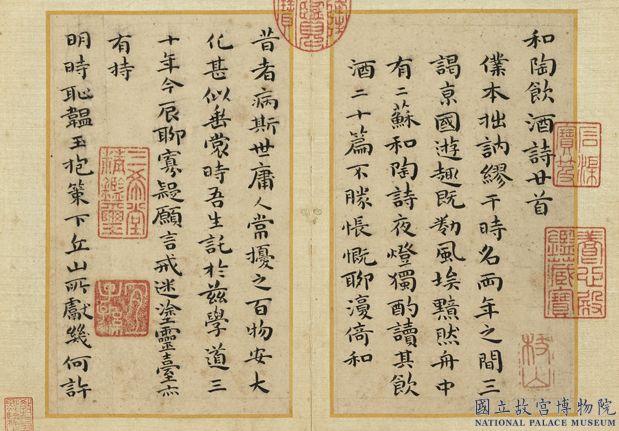 和陶飲酒詩廿首
僕本拙訥繆干時名兩年之間三
謁京國遊趣既勌風埃黯然舟中
有二蘇和陶詩夜燈獨酌讀其飲
酒二十篇不勝悵慨聊濅倚和
昔者病斯世庸人常擾之百物安大
化甚似垂裳時吾生託於茲學道三
十年今辰聊寡疑願言戒迷塗靈臺亦
有持
明時恥韞玉抱策下丘山所獻幾何許
三希堂
精鑑璽
宜子孫
石渠
寶笈
養心殿
鑑藏寶
國立故宮博物院
NATIONAL PALACE MUSEUM